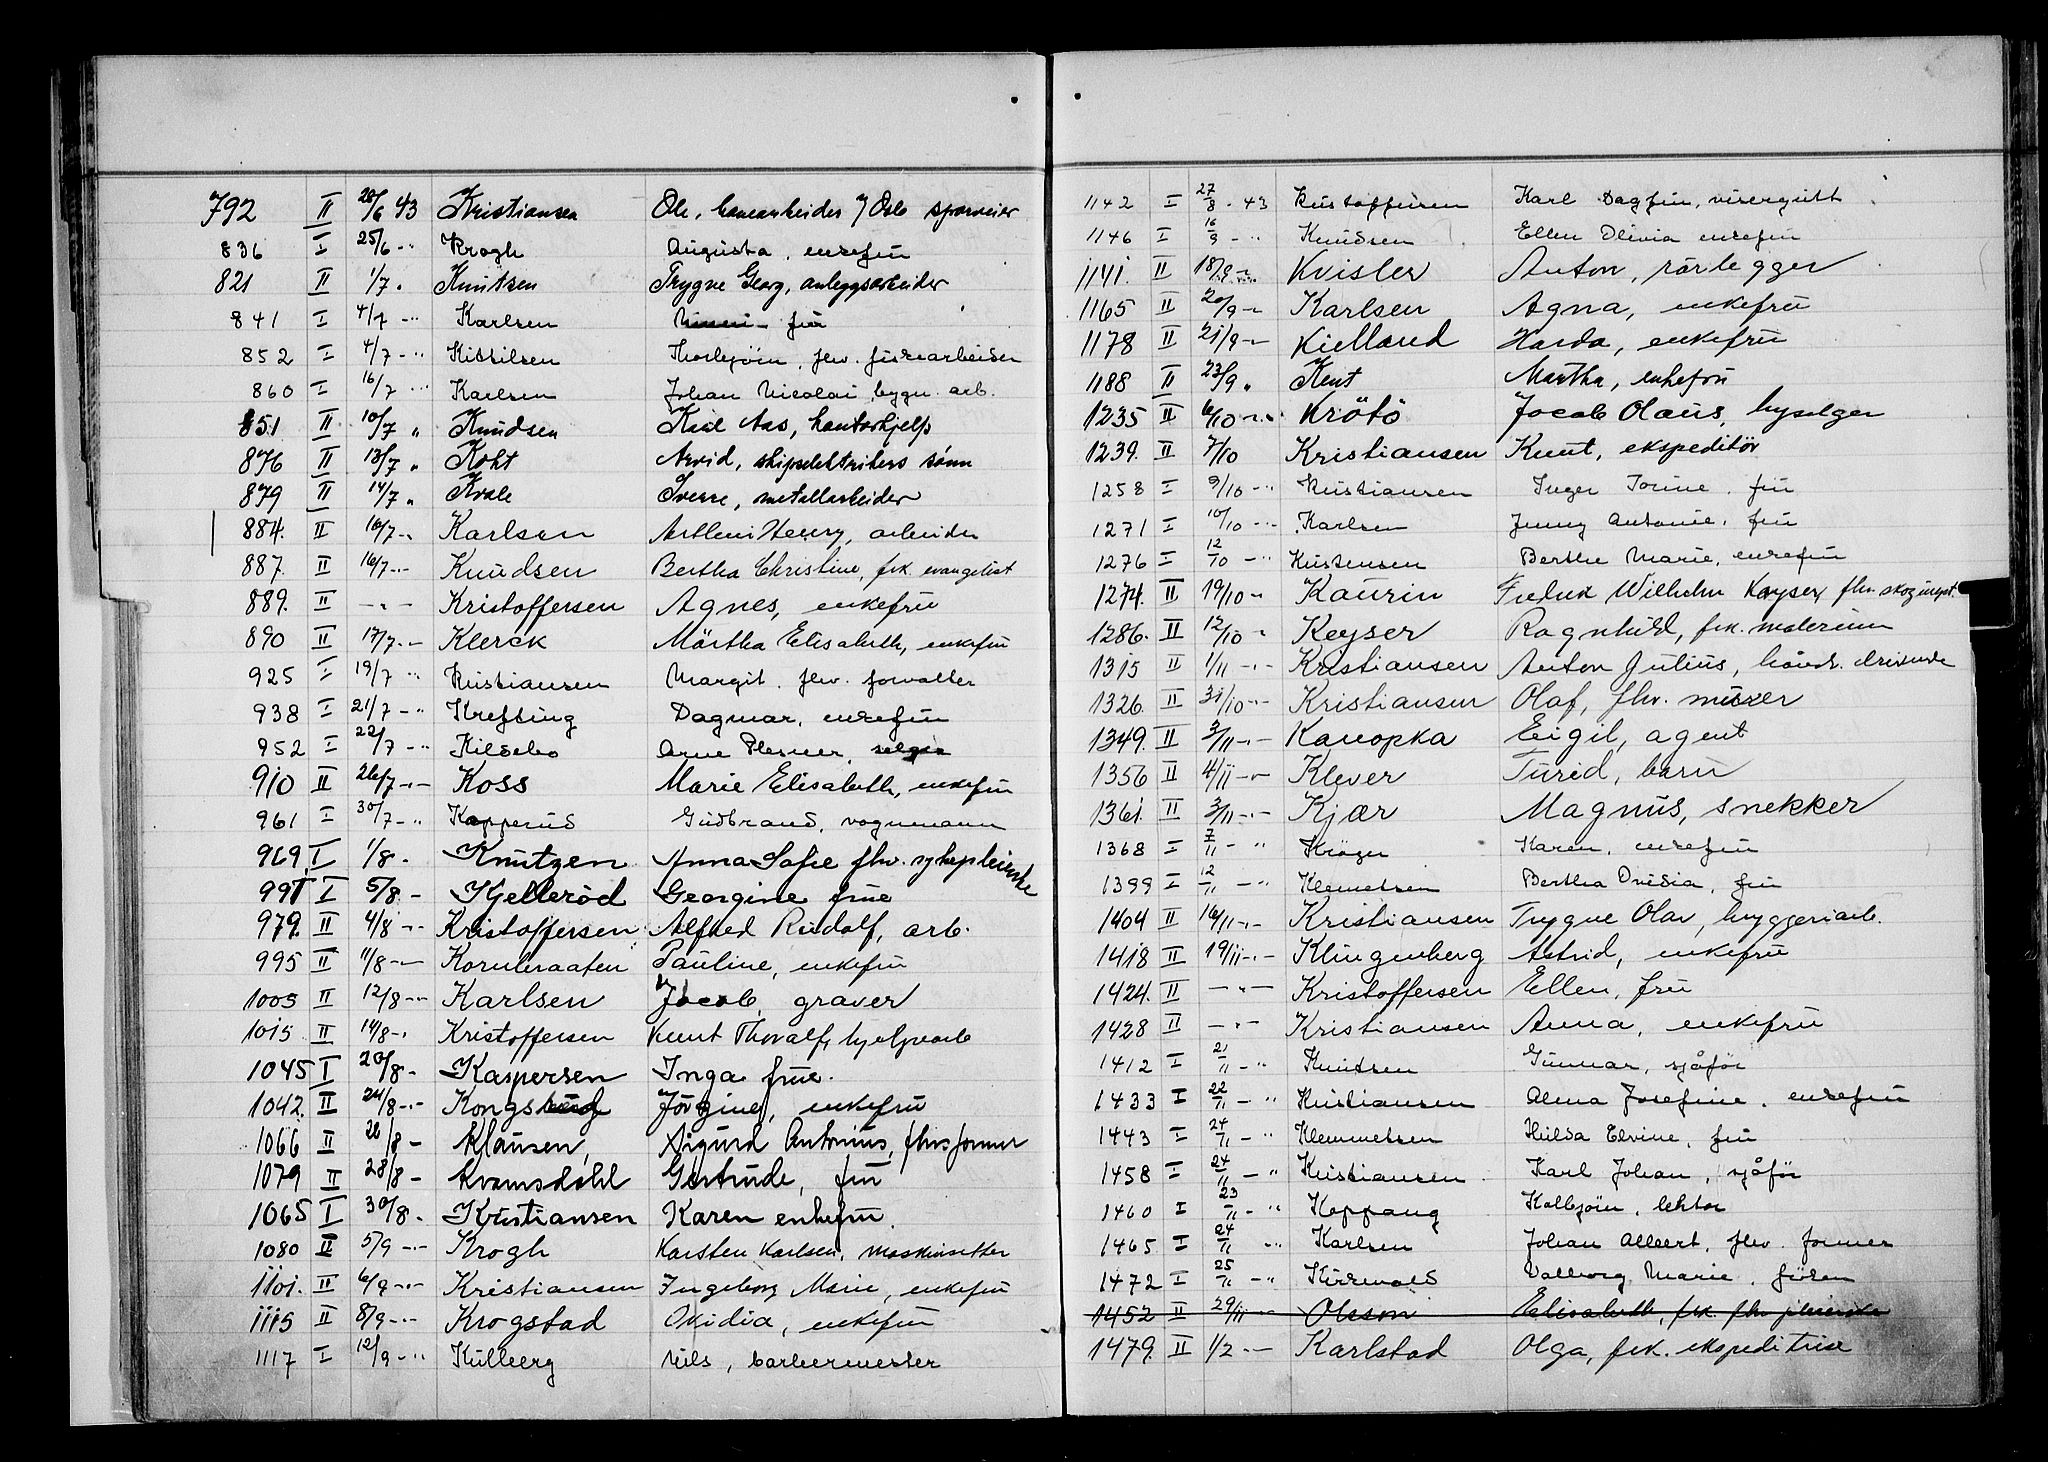 792 II 20/6 43 Kristiansen Ole, banearbeider v/ Oslo sporveier
836 I 25/6 -" Krogh Augusta, enkefru
821 II 1/7 " Knutsen Trygve Georg, anleggsarbeider
841 I 4/7 -" Karlsen fru
852 I 4/7 -" Kittilsen Thorbjörn, fhv. fiskearbeider
860 I 16/7 -" Karlsen Johan Nicolai, bygn. arb.
851 II 10/7 " Knudsen Karl Aas, kontorhjelp
876 II 13/7 " Koht Arvid, skipselektrikers sønn
879 II 14/7 " Kvale Sverre, metallarbeider
884. II 16/7 -" Karlsen Henry, arbeider
887. II 16/7 -"- Knudsen Bertha Christine, frk. evangelist
889. II -"- Kristoffersen Agnes, enkefru
890 II 17/7 -"- Klerck Märtha Elisabeth, enkefru
925 I 19/7 -" Kristiansen Margit, fhv. forvalter
938 I 21/7 -" Krefting Dagmar, enkefru
952 I 22/7 -" Kilsebo Arne Plesner, selger
910 II 26/7 -"- Koss Marie Elisabeth, enkefru
961 I 30/7 -" Kopperud Gudbrand, vognmann
969 I 1/8 - Knutzen Anna Sofie fhv. sykepleierske
991 I 5/8 - Kjelleröd Georgine frue
979. II 4/8 -"- Kristoffersen Alfred Rudolf, arb.
995 II 11/8 -"- Kornbraaten Pauline, enkefru
1005 II 12/8 -"- Karlsen Jacob, graver
1015 II 14/8 -" Kristoffersen Knut Thoralf, hjelpearb
1045 I 20/8 - Kaspersen Inga frue.
1042. II 24/8 -"- Kongsberg Jörgine, enkefru
1066 II 26/8 - Klausen, Sigurd Antonius, fhv. former
1079 II 28/8 - Kvamsdahl Gertrude, fru
1065 I 30/8 - Kristiansen Karen enkefru.
1080 II 5/9 -"- Krogh Karsten Karlsen, maskinsetter
1101. II 6/9 -"- Kristiansen Ingeborg Marie, enkefru
1115 II 8/9 -"- Krogstad Ovidia, enkefru
1117 I 12/9 -" Kulberg Nils, barbermester
1142 I 27/8 - 43 Kristoffersen Karl Dagfin, visergutt
1146 I 16/9 -" Knudsen Ellen Olivia enkefru
1141. II 18/9 -"- Kvisler Anton, rörlegger
1165 II 20/9 - Karlsen Agna, enkefru
1178 II 21/9 - Kielland Harda, enkefru
1188 II 23/9 " Kent Martha, enkefru
1235 II 6/10 -"- Krötö Jacob Olaus, byselger
1239. II 7/10 Kristiansen Knut, ekspeditör
1258 I 9/10 -" Kristiansen Inger Jorine, fru
1271 I 10/10 -" Karlsen Jenny Antonie, fru
1276 I 12/10 -" Kristensen Berthe Marie, enkefru
1274. II 19/10 - Kaurin Fredrik Wilhelm Kayser, fhv. skoginsp.
1286. II 12/10 - Keyser Ragnhild, frk. malerinne
1315 II 1/11 -"- Kristiansen Anton Julius, håndv. drivende
1326 II 31/10 -"- Kristiansen Olaf, fhv. murer
1349. II 3/11 -"- Kanopka Eigil, agent
1356 II 4/11 -"- Klever Turid, barn
1361. II 3/11 -"- Kjær Magnus, snekker
1368 I 7/11 -" Kröger Karen, enkefru
1399 I 12/11 -" Klemetsen Bertha Ovidia, fru
1404 II 16/11 -"- Kristiansen Trygve Olav, bryggeriarb.
1418 II 19/11 -"- Klingenberg Astrid, enkefru
1424. II -"- Kristoffersen Ellen, fru
1428 II -"- Kristiansen Anna, enkefru
1412 I 21/11 -" Knutsen Gunnar, sjåför
1433 I 22/11 -" Kristiansen Alma Josefine, enkefru
1443 I 24/11 -" Klemmetsen Hilda Elvine, fru
1458 I 24/11 -" Kristiansen Karl Johan, sjåför
1460 I 23/11 -" Koppang Kolbjörn, lektor
1465 I 24/11 -" Karlsen Johan Albert, fhv. former
1472 I 25/11 -" Kirkvold Valborg Marie, fröken
1452 II 29/11 Olsson Elisabeth, frk. fhv. pleierske
1479. II 1/2 -"- Karlstad Olga, frk. ekspeditrise